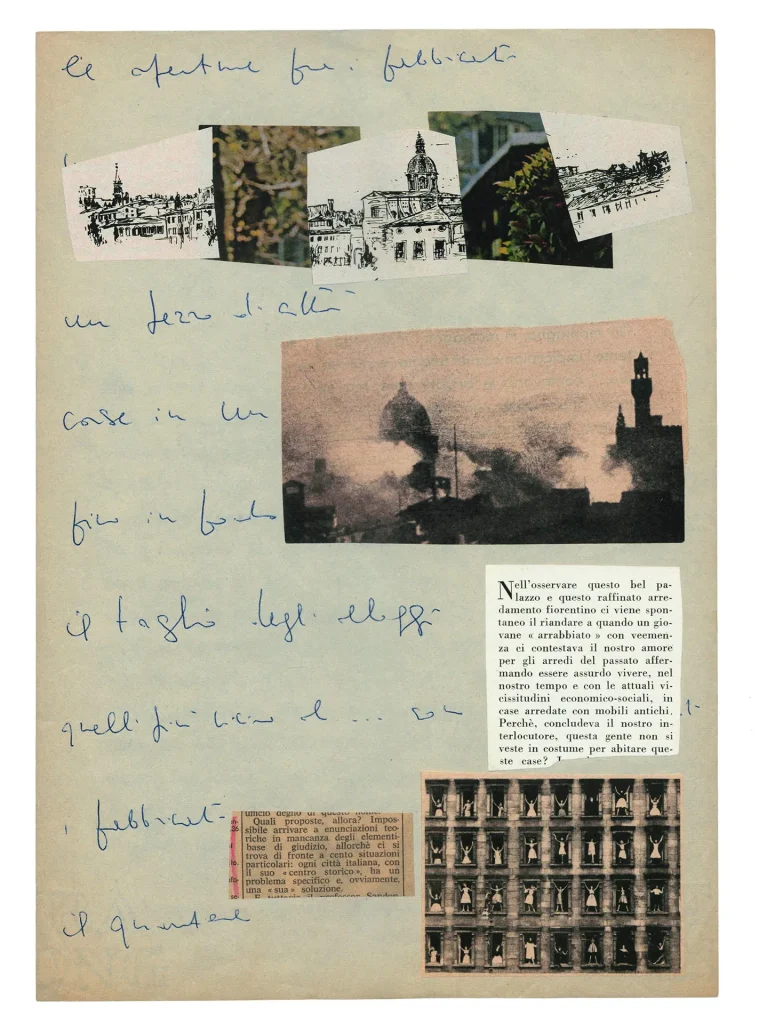 le aperture fra i fabbricati
un pezzo di città
case in un
fino in fondo
Nell'osservare questo bel pa-
lazzo e questo raffinato arre-
damento fiorentino ci viene spon-
taneo il riandare a quando un gio-
vane « arrabbiato » con veemen-
za ci contestava il nostro amore
per gli arredi del passato affer-
mando essere assurdo vivere, nel
nostro tempo e con le attuali vi-
cissitudini economico-sociali, in
case arredate con mobili antichi.
Perchè, concludeva il nostro in-
terlocutore, questa gente non si
veste in costume per abitare que-
ste case?
il taglio degli alloggi
quelli più vicino al ... con
i fabbricati
ufficio degno di questo nome.
Quali proposte, allora? Impos-
sibile arrivare a enunciazioni teo-
riche in mancanza degli elementi-
base di giudizio, allorchè ci si
trova di fronte a cento situazioni
particolari: ogni città italiana, con
il suo «centro storico», ha un
problema specifico e, ovviamente,
una «sua» soluzione.
E tuttavia il professor Sandro
il quartiere